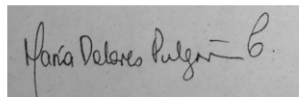 María Dolores Pulgarín C.